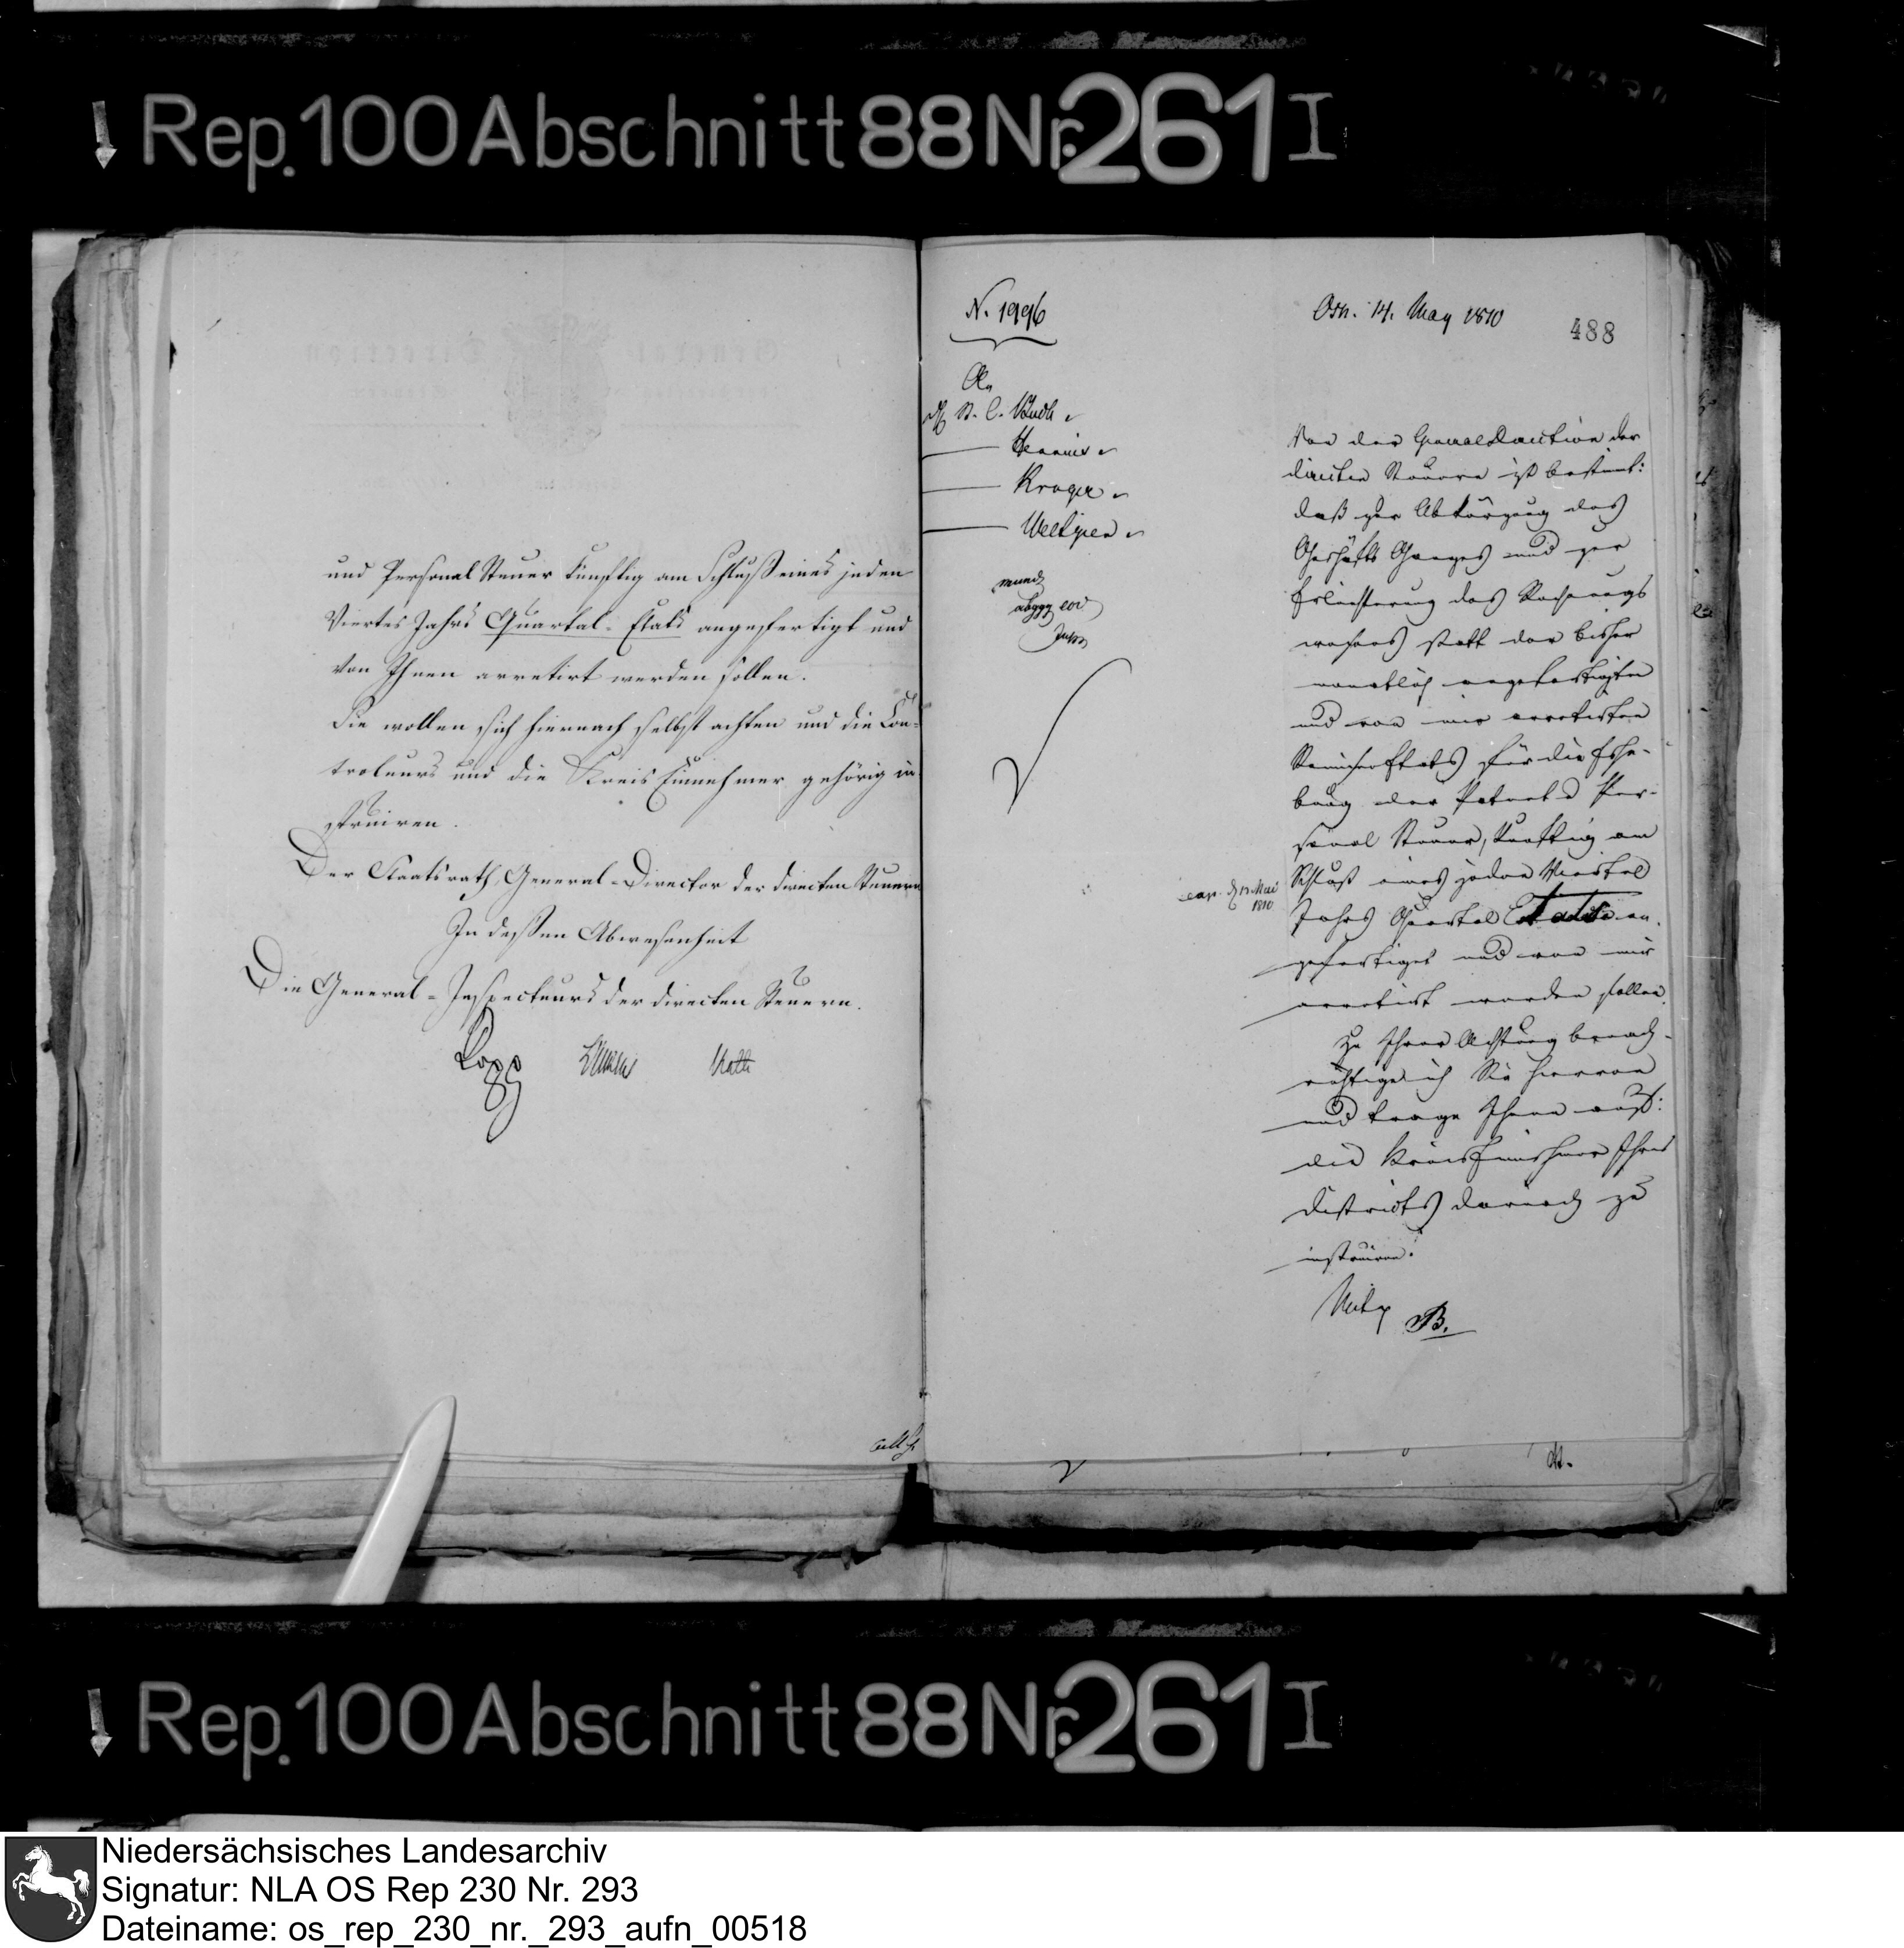 Rep. 100 Abschnitt 88 Nr. 261 I
und Personal Steuer künftig am Schluß eines jeden
Viertes Jahrs Quartal-Etats angefertigt und
von Ihnen arretirt werden sollen.
Sie wollen sich hiernach selbst achten und die Con-
troleurs und die Kreis Einnehmer gehörig in-
struiren.
Der Staatsrath, General-Director der directen Steuern
In dessen Abwesenheit
Die General-Inspecteurs der directen Steuern.
N. 1996
Osn. 14. May 1810
488
An
St. C.
Kruger
mund
Von der General Direction der
directen Steuern ist bestimt:
daß zur Abkürzung des
Geschäfts Ganges und zur
Erleichterung des Rechnungs
wesens statt der bisher
monatlich angefertigten
und von mir arretirten
für die Erhe-
bung der Patent & Per-
sonal Steuer, künftig am
Schluß eines jeden Viertel
Jahrs Quartal Etats an-
gefertiget und von mir
arretirt werden sollen.
Zu Ihrer Achtung benach-
richtige ich Sie hiervon
und trage Ihnen auf:
die Kreis Einnehmer Ihres
Districts darnach zu
instruiren.
B.
Rep. 100 Abschnitt 88 Nr. 261 I
Niedersächsisches Landesarchiv
Signatur: NLA OS Rep 230 Nr. 293
Dateiname: os_rep_230_nr._293_aufn_00518